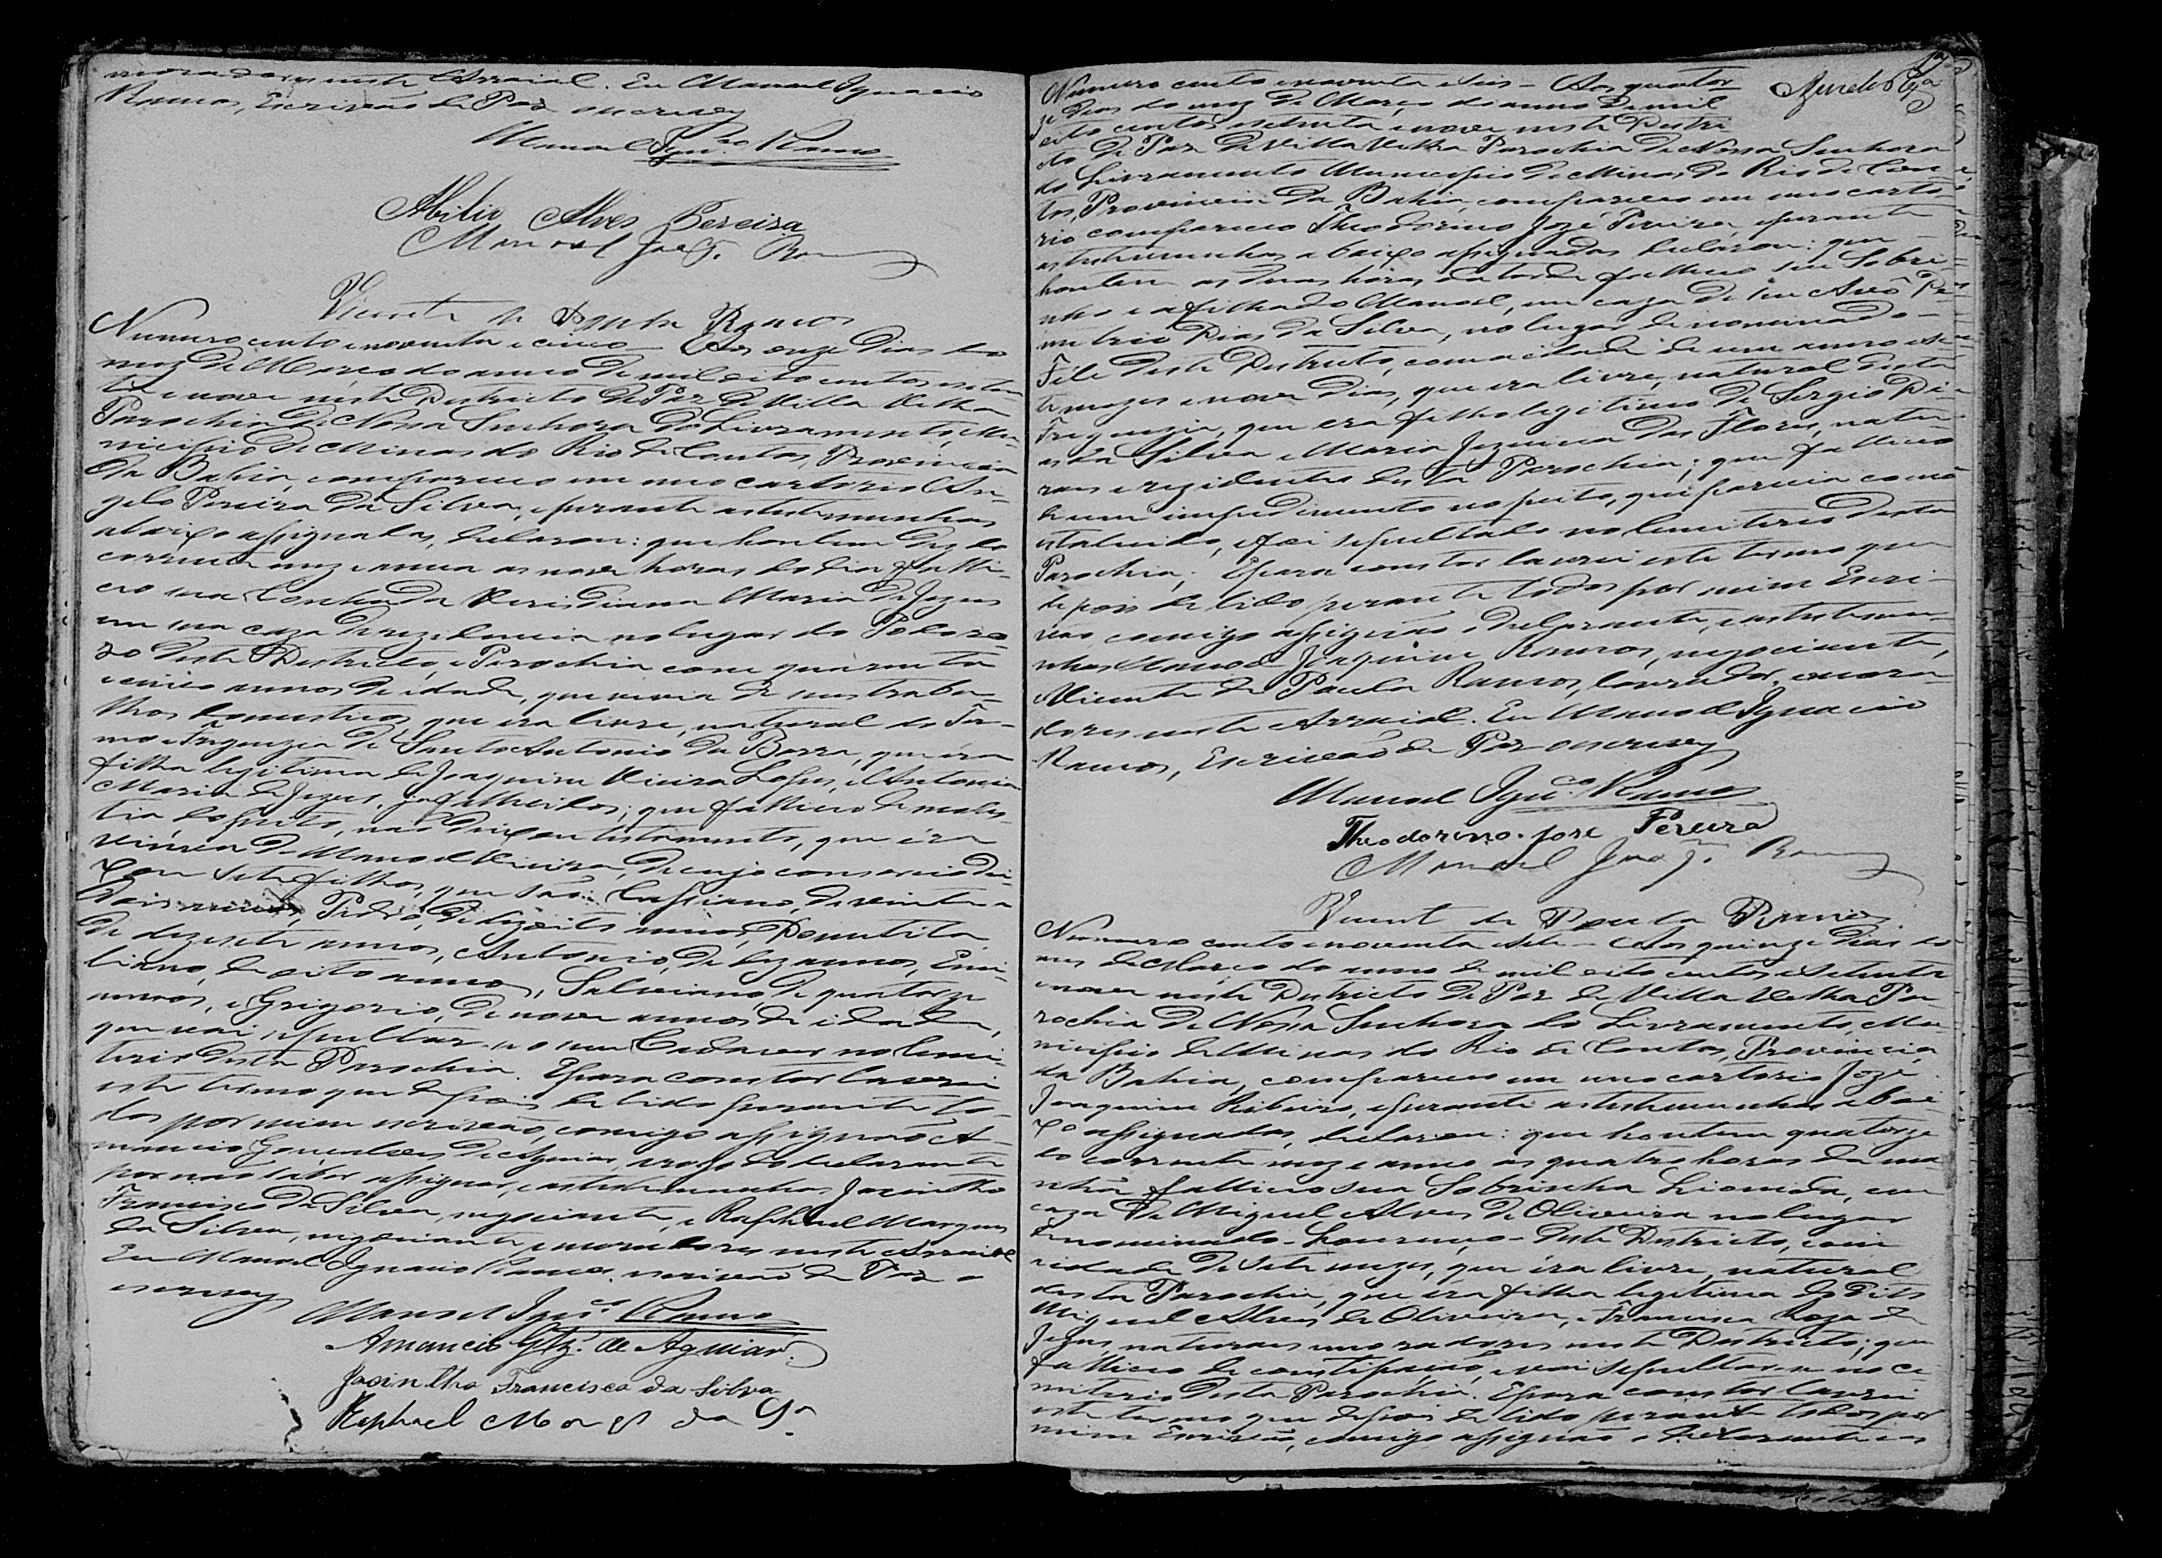 moradores neste Arraial. Eu Manoel Ignacio
Ramos, Escrivão de Paz escrevy
Manoel Ign.co Ramos
Abilio Alves Pereira
Manoel Joaq. Ramos
Vicente de Paula Ramos
Numero cento e noventa e cinco – Aos onze dias do
mez de Março do anno de mil oito centos e seten
ta e nove neste Districto de Paz de Villa Velha
Parochia de Nossa Senhora do Livramento, Mu-
nicipio de Minas do Rio de Contas, Provincia
da Bahia, compareceo em meo cartorio An-
gelo Pereira da Silva, e perante as testemunhas
abaixo assignadas, declarou: que hontem dez do
corrente mez e anno as nove horas do dia falle-
ceo sua Cunhada Veridiana Maria de Jezus
em sua caza de rezidencia no lugar do
deste Districto, e Parochia com quarenta
e cinco annos de idade, que vivia de seus traba-
lhos domesticos, que era livre, natural do Ter-
mo e Freguezia de Santo Antonio da Barra, que éra
filha legitima de Joaquim Vieira Lopes, e Antonia
Maria de Jezus, já fallecidos; que falleceo de moles-
tia do peito, não deixou testamento, que éra
viuva de Manoel Vieira, de cujo consorcio dei-
xou sete filhos, que são: Cassiano, de vinte e
dois annos, Pedro, de dezoito annos,
de dezesete annos, Antonio, de dez annos, Emi-
liano, de oito annos, Salviano de quatorze
annos, e Grigorio, de nove annos de idade,
que vai sepultar-se o seu Cadaver no Cemi-
terio desta Parochia. E para constar lavrei
este termo que depois de lido perante to-
dos por mim escrivão, comigo assignão A-
mancio Gonçalves de Aguiar, a rogo do declarante
por não saber assignar, e as testemunhas Jacintho
Francisco da Silva, negociante, e Raphael Marques
da Silva, negociante, moradores neste Arraial
Eu Manoel Ignacio Ramos, escrivão de Paz o
escrevy
Manoel Ign.co Ramos
Amancio Glz. de Aguiar.
Jacintho Francisco da Silva
Raphael Marqs da Sa
Numero cento e noventa e seis – Aos quator
ze dias do mez de Março do anno de mil
oito centos e setenta e nove neste Distri
cto de Paz de Villa Velha Parochia de Nossa Senhora
do Livramento Municipio de Minas do Rio de Con
tas, Provincia da Bahia, compareceo em meo carto
rio compareceo Theodorino Jozé Pereira, e perante
as testemunhas abaixo assignadas declarou: que
hontem as duas horas da tarde falleceo seu Sobri-
nho e afilhado Manoel, em caza de seu Avô De
metrio Dias da Silva, no lugar denominado –
deste Districto, com a idade de um anno e se
te mezes e nove dias, que era livre, natural desta
Freguezia, que era filho legitimo de Sergio Di-
as da Silva e Maria Jezuina das Flores, natu-
raes e rezidentes desta Parochia; que falleceo
de um impedimento no peito, que parecia como
estalecido, e foi sepultado no Cemiterio desta
Parochia; E para constar lavrei este termo que
depois de lido perante todos por mim Escri-
vão, comigo assignão o declarante, e as testemu-
nhas Manoel Joaquim Ramos, negociante,
e Vicente de Paula Ramos, lavrador, e mora-
dores neste Arraial. Eu Manoel Ignacio
Ramos, Escrivão de Paz o escrevy
Manoel Ign.co Ramos
Theodorino José Pereira
Manoel Joaqm. Ramos
Vicente de Paula Ramos
Numero cento e noventa e sete – Aos quinze dias do
mes de Março do anno de mil oito centos e setenta
e nove neste Districto de Paz de Villa Velha Pa
rochia de Nossa Senhora do Livramento, Mu-
nicipio de Minas do Rio de Contas, Provincia
da Bahia, compareceo em meo cartorio Jozé
Joaquim Ribeiro, e perante as testemunhas abai-
xo assignadas, declarou: que hontem quatorze
do corrente mez e anno as quatro horas da ma-
nhã falleceo sua Sobrinha Leonida, em
caza de Miguel Alves de Oliveira no lugar
denominado – Lourenço – deste Districto, com
idade de sete mezes, que éra livre, natural
desta Parochia, que éra filha legitima do dito
Miguel Alves de Oliveira, e Francisca Roza de
Jezus, naturaes e moradores neste Districto; que
falleceo de constipação, e vai sepultar-se no ce-
miterio desta Parochia. E para constar lavrei
este termo que depois de lido perante todos por
mim Escrivão, comigo assignão o declarante e as